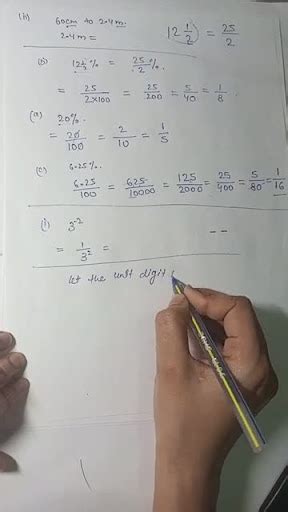 (b) 60cm to 2.4m.
2.4m =
12 1/2) = 25/2
(b) 12 1/2 % = 25/2 %.
= 25/2×100 = 25/200 = 5/40 = 1/8.
(a) 20%.
= 20/100 = 2/10 = 1/5
(c) 6.25%.
6.25/100 = 625/10000 = 125/2000 = 25/400 = 5/80 = 1/16
(i) 3^-2
= 1/3^2 =
- -
let the unit digit